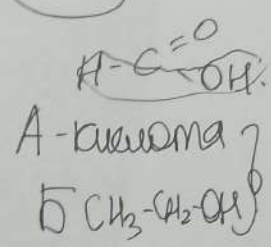 H-C=O
OH
А-кислота
Б CH3-CH2-OH